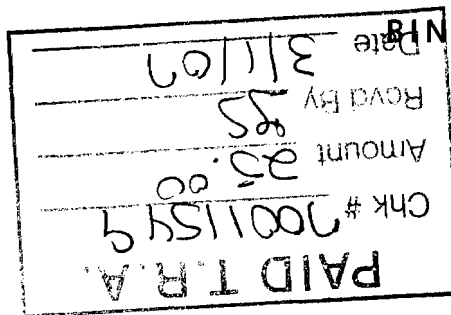 PAID T.R.A.
Chk # 70011549
Amount 25.00
Rcvd By
Date 3/1/07
BIN